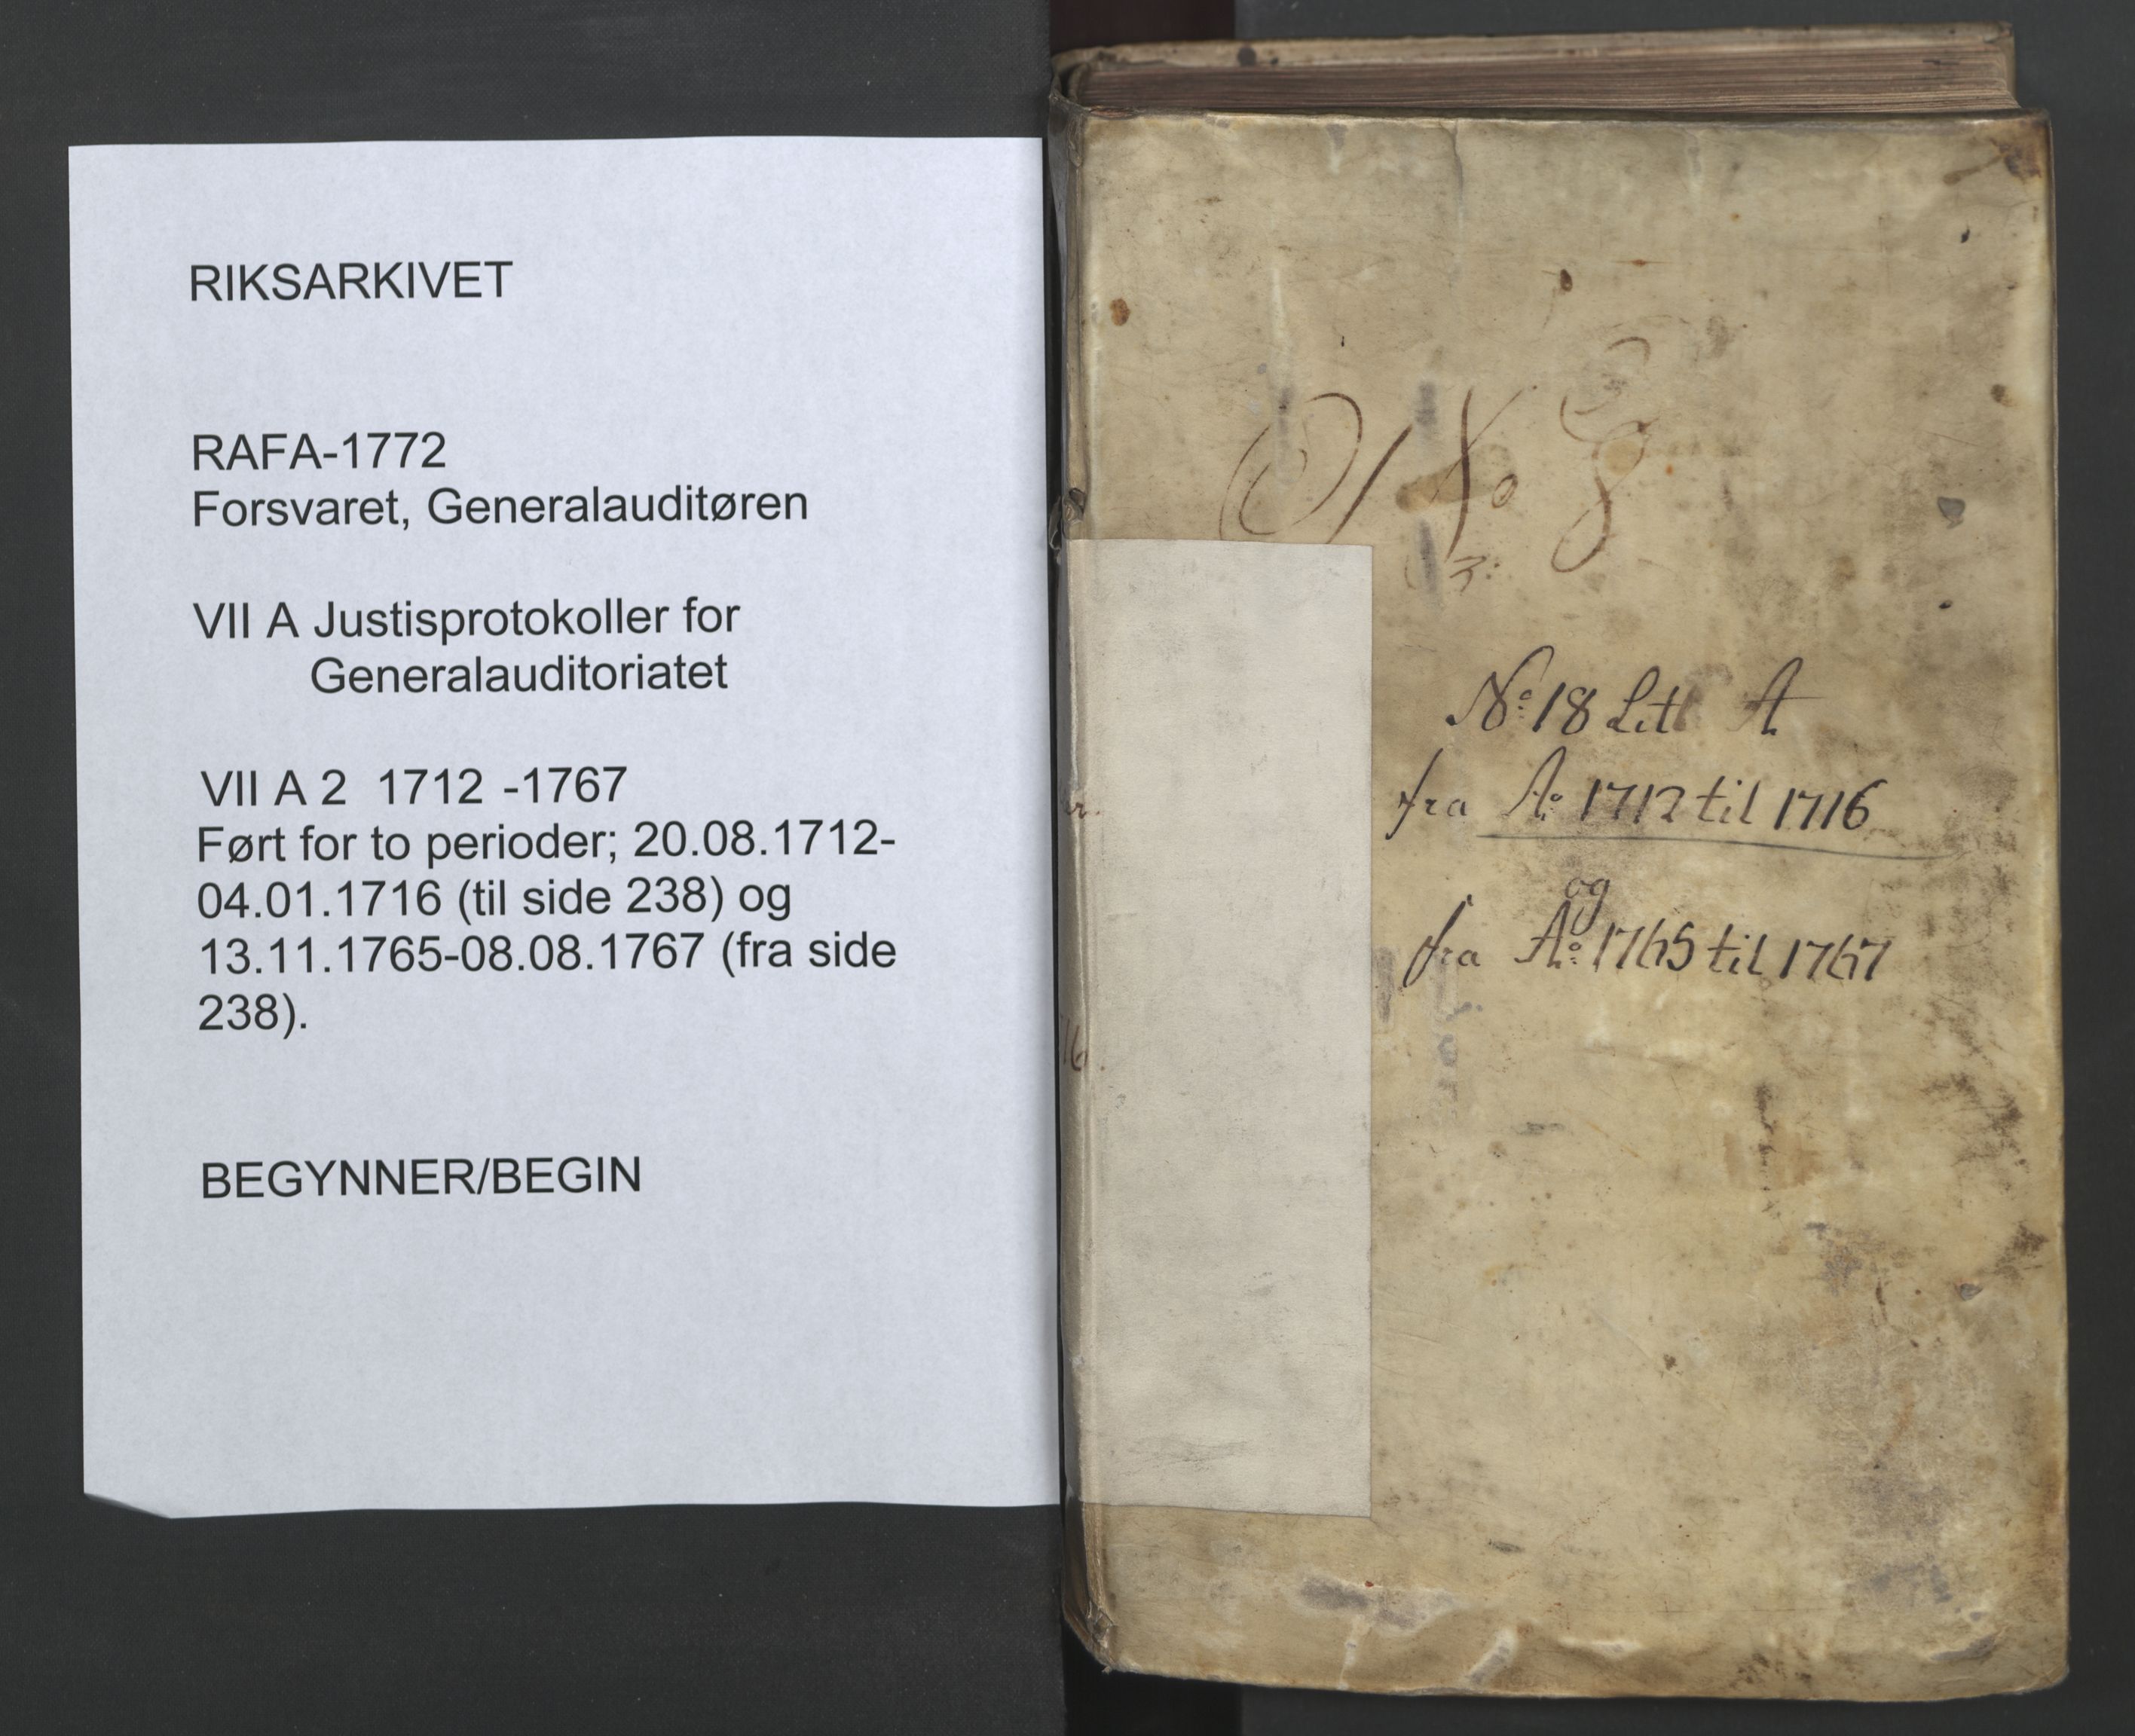 RIKSARKIVET
RAFA-1772
Forsvaret, Generalauditøren
VII A Justisprotokoller for
Generalauditoriatet
VII A 2 1712 -1767
Ført for to perioder; 20.08.1712-
04.01.1716 (til side 238) og
13.11.1765-08.08.1767 (fra side
238).
BEGYNNER/BEGIN
No 18 Litt A
fra Ao 1712 til 1716
og
fra Ao: 1765 til 1767